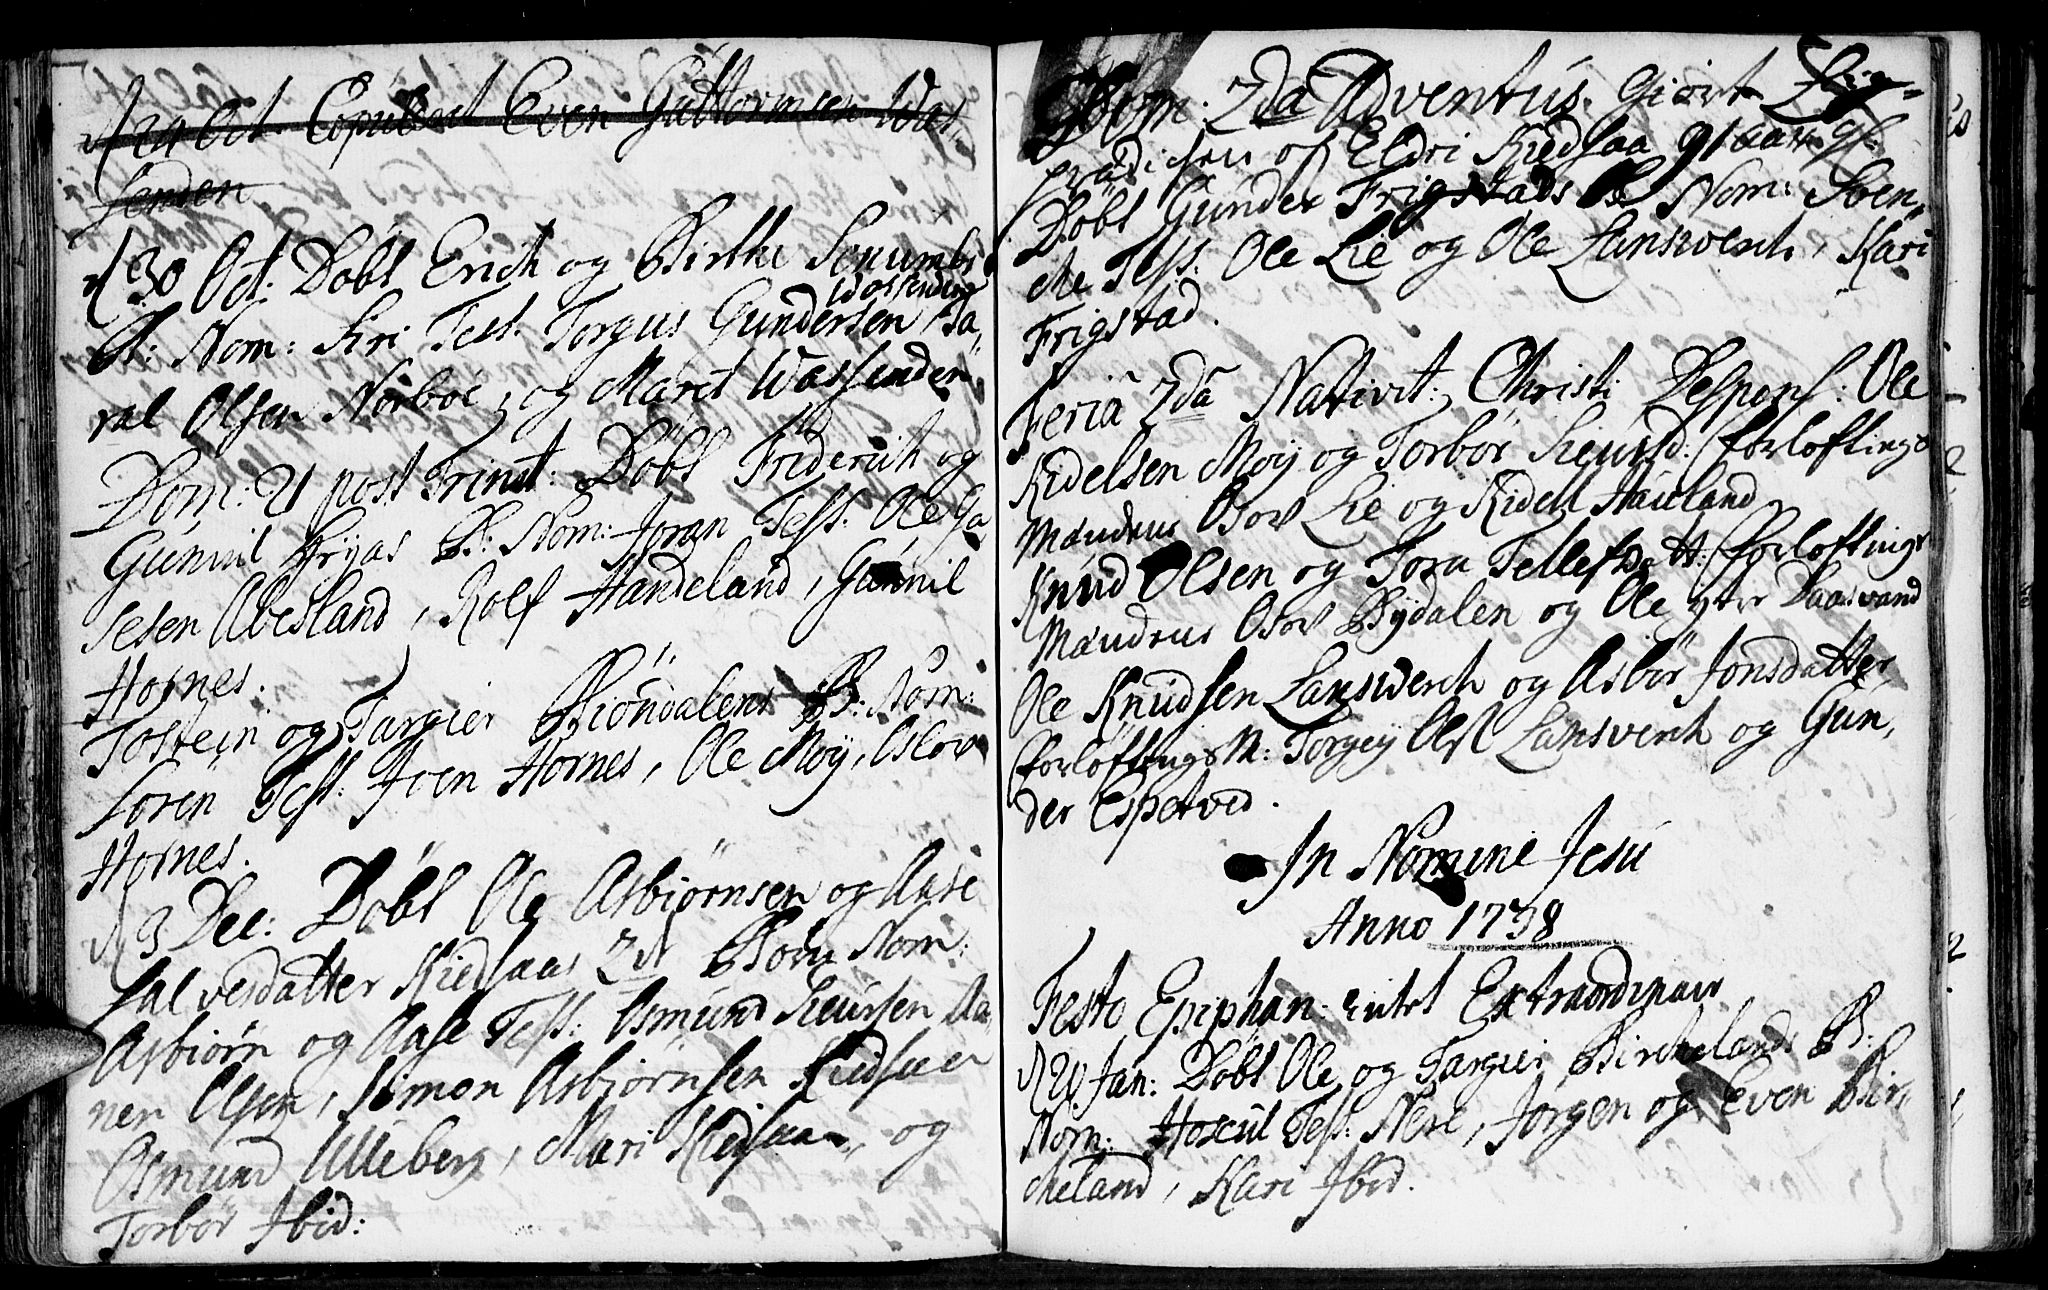 d 24 Oct. Copulert Even Guttormsen Was-
senden
d 30 Oct: Döbt Erich og Birthe Senumbr
Wassenden
B: Nom: Siri Test. Torgus Gundersen, Ta-
ral Olsen Norböe, og Marit Wassenden.
Dom: 21 post Trinit: Döbt Friderich og
Gunnil Fryas B: Nom: Joran Tess. Ole Ga
sesen Abesland, Rolf Handeland, Gunnil
Hornes.
Tostein og Targier Biöndalens B: Nom:
Sören Tess. Joen Hornes, Ole Moÿ, Aslov
Hornes.
d 3 Dec: Döbt Ole Asbiörnsen og Aase
Salvesdatter Kiedsaas 2de Börn Nom:
Asbiörn og Aase Tess: Osmund Siursen Aa
nen Olsen, Simon Asbiörnsen Kiedsaa
Osmund Ulleberg, Mari Kiedsaa, og
Torbör Ibid:
Dom: 2da Adventus. Giört Lig-
prædichen of Eldri Kiedsaa 91 aar gl.
Döbt Gunder Frigstads B Nom: Sven,
che Tess. Ole Lie og Ole Lansverch, Kari
Frigstad.
Feria 2da Nativit: Christi Despens: Ole
Kidelsen Moÿ og Torbör Siursd: Forloftings
Mændene Osov Lie og Kidell Hauland
Knud Olsen og Tora Tellefsdatt: Forloftings
Mændene Osov Bÿdalen og Ole ytr Daasvand
Ole Knudsen Lansverch og Asbör Jonsdatter
Forlöftings M: Torgeÿ Ols. Lansverch og Gun,
der Espetved.
In Nomine Jesu
Anno 1738
Festo Epiphan: intet Extraordinair
d 20 Jan: Döbt Ole og Targier Birchelands B:
Nom: Hoscul Tess: Nere, Jörgen og Even Bir,
cheland, Kari Ibid.